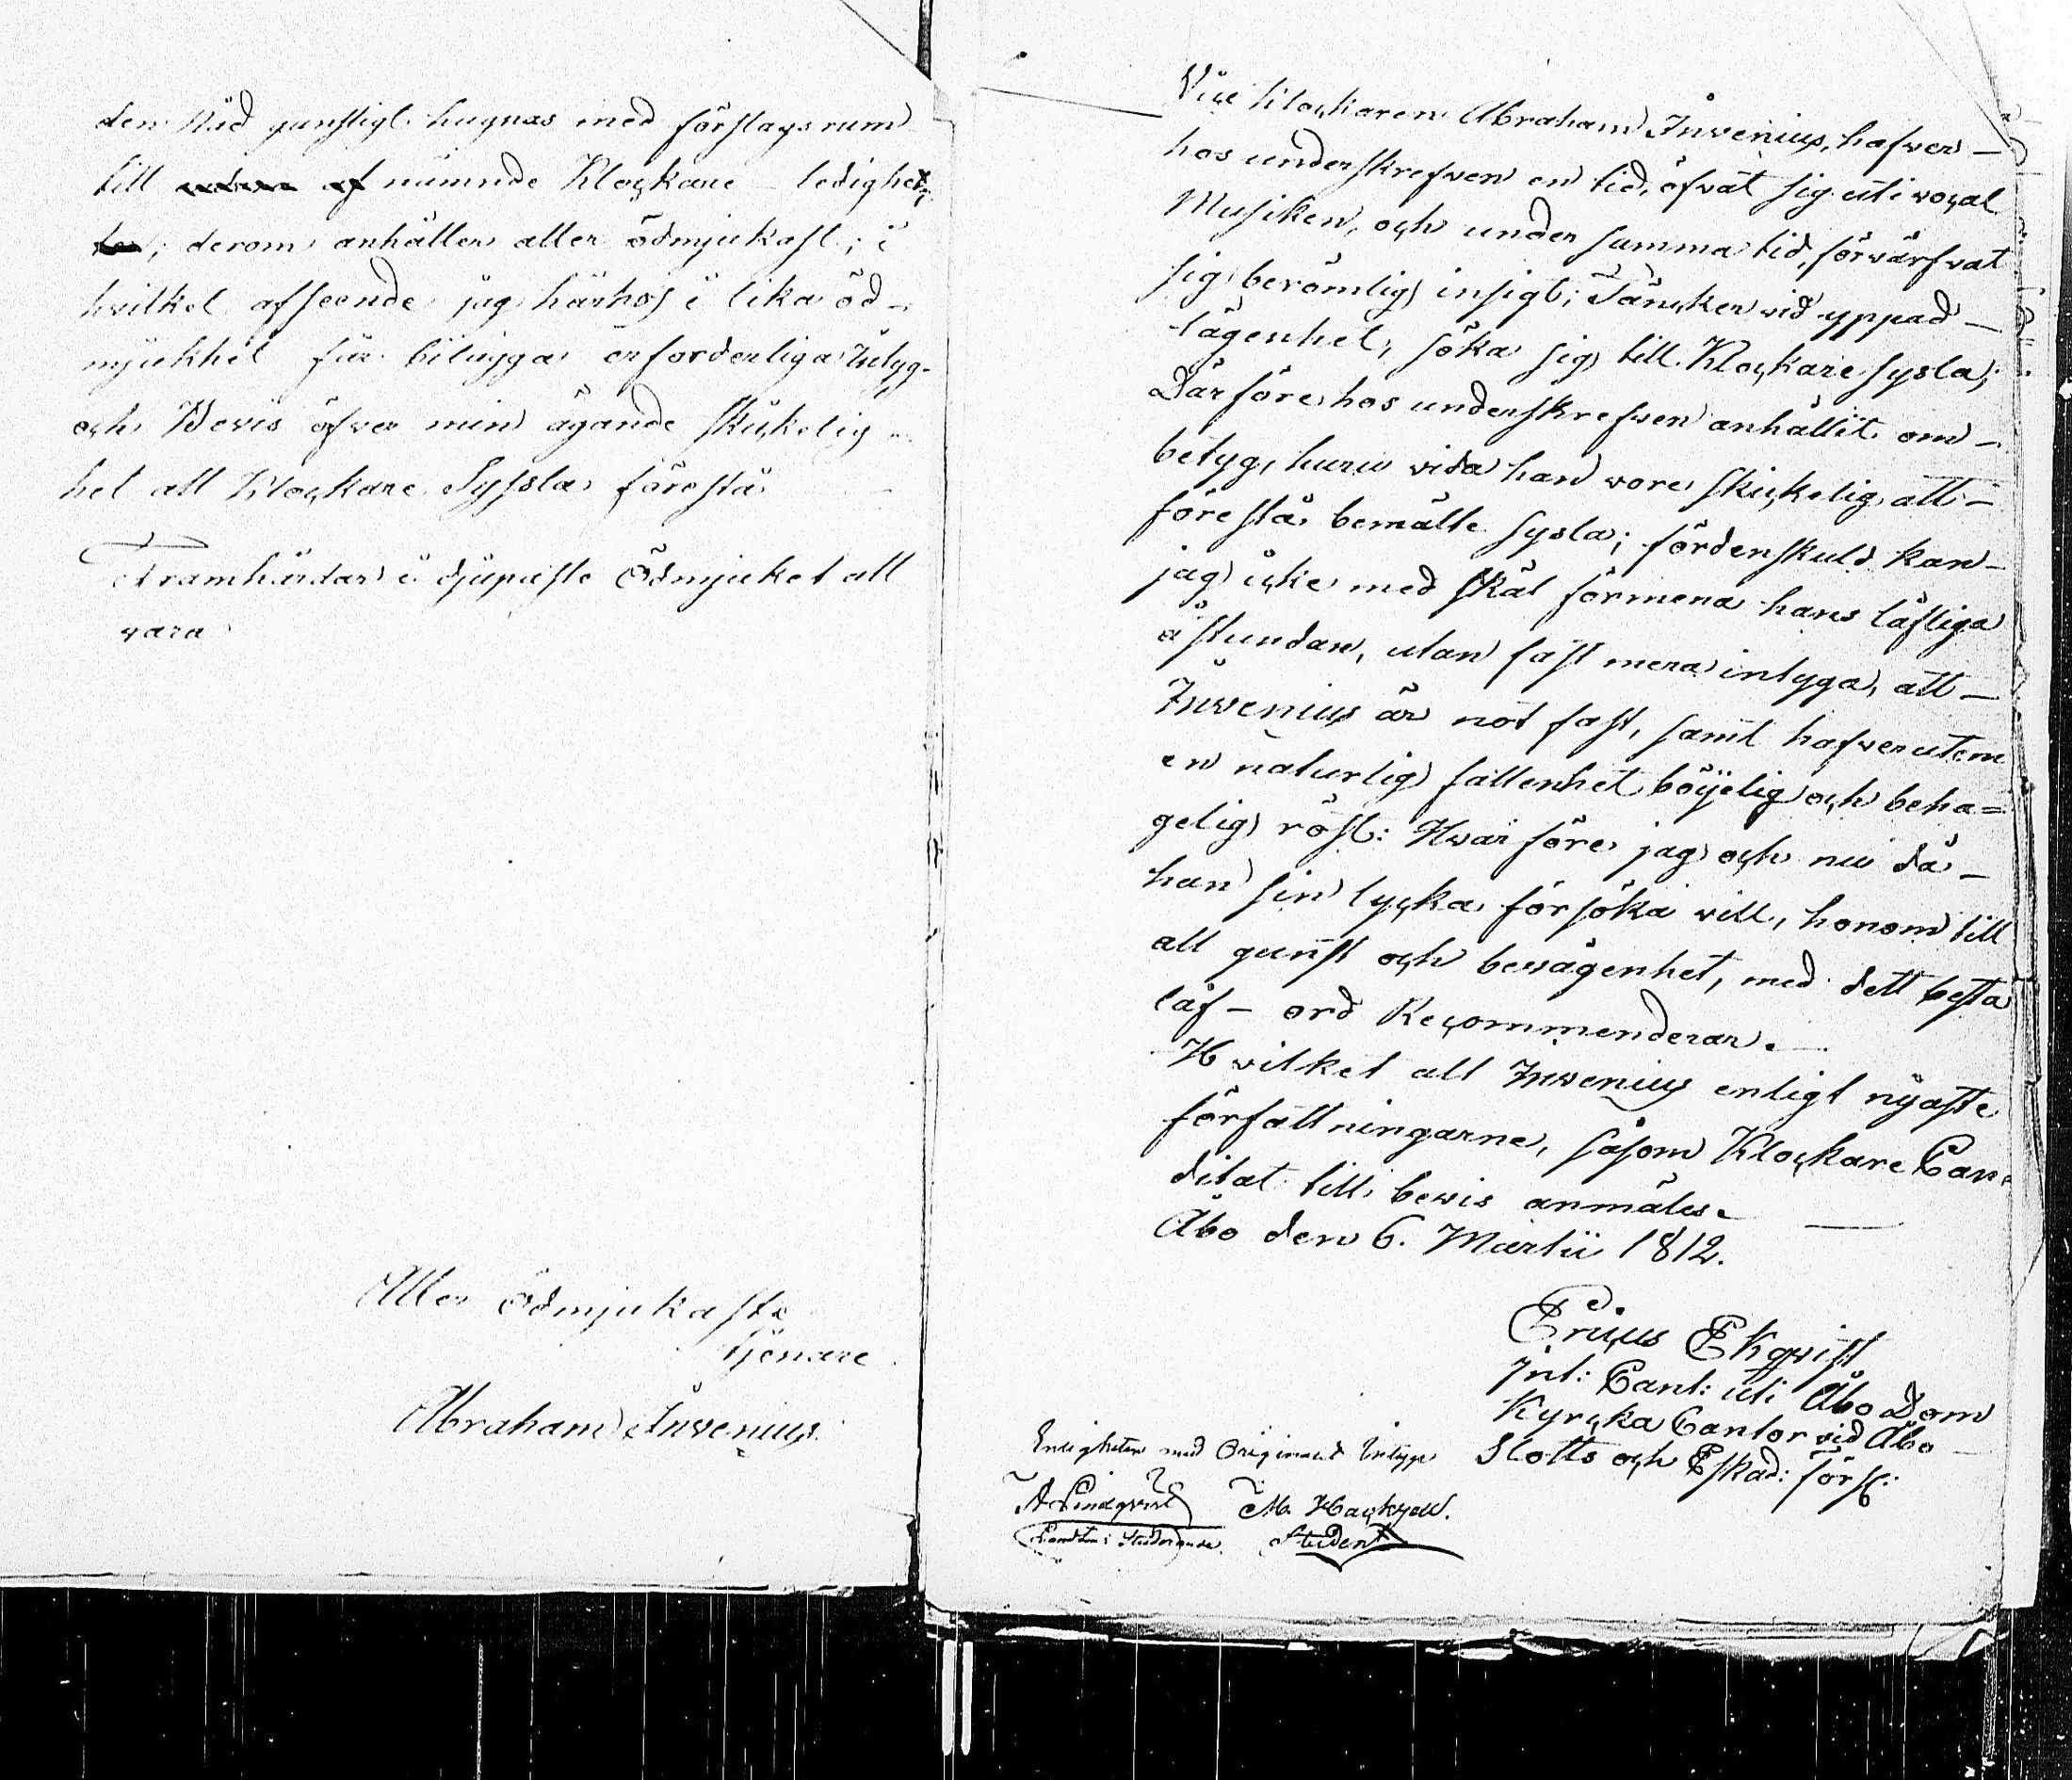 den Nåd gunstigt hugnas med förslagsrum
till nämnde Klockare - ledighet,
; derom anhåller aller ödmjukast; i
hvilket afseende jag härhos i lika öd-
mjukhet får bilägga erforderliga Intyg-
och Bevis öfver min ägande skickelig-
het att Klockare Syssla förestå
Framhärdar i djupaste Ödmjukhet att
vara
Aller Ödmjukaste
tjenare
Abraham Invenius.
Vice Klockaren Abraham Invenius, hafver -
hos underskrefven en tid, öfvat sig uti vocal
Musiken, och under samma tid, förvärfvat
sig berömlig insigt; Täncker vid yppad -
lägenhet, söka sig till Klockare sysla;
Därföre hos underskrefven anhållit om -
betyg, huru vida han vore skickelig att -
förestå bemälte sysla; fördenskuld kan -
jag icke med skäl förmena hans låfliga
åstundan, utan fast mera intyga, att -
Invenius är not fast, samt hafver utom
en naturlig fallenhet böÿelig och beha=
gelig röst: Hvarföre jag och nu då -
han sin lycka försöka vill, honom till
all gunst och bevågenhet, med dett besta
låf - ord Recommenderar. -
Hvilket all Invenius enligt nyaste
författningarne, såsom Klockare Can-
ditat till bevis anmäles.
Åbo den 6. Martii 1812.
Ericus Ekqvist
Int: Cant: uti Åbo Dom
Kyrcka Cantor vid Åbo -
Slotts och Eskad: förs:
Enligheten med Original Intyget
A Lindqvist M. Hackzell.
Studerande. Student